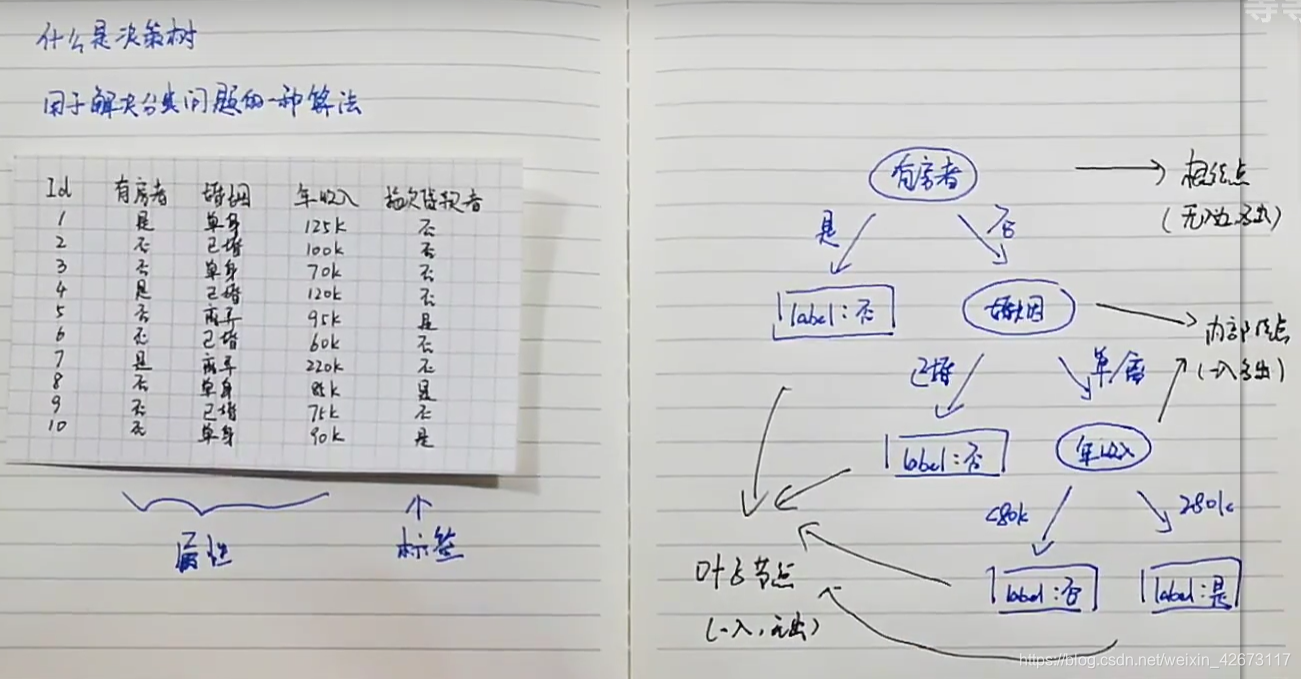 什么是决策树
用于解决分类问题的一种算法
Id 有房者 婚姻 年收入 拖欠贷款者
1 是 单身 125k 否
2 否 已婚 100k 否
3 否 单身 70k 否
4 是 已婚 120k 否
5 否 离异 95k 是
6 否 已婚 60k 否
7 是 离异 220k 否
8 否 单身 85k 是
9 否 已婚 75k 否
10 否 单身 90k 是
属性 标签
等等
有房者 根结点
(无入边,多出)
是 否
label:否 婚姻 内部结点
(一入多出)
已婚 单/离
label:否 年收入
<80k ≥80k
叶子节点 label:否 label:是
(一入,无出)
https://blog.csdn.net/weixin_42673117